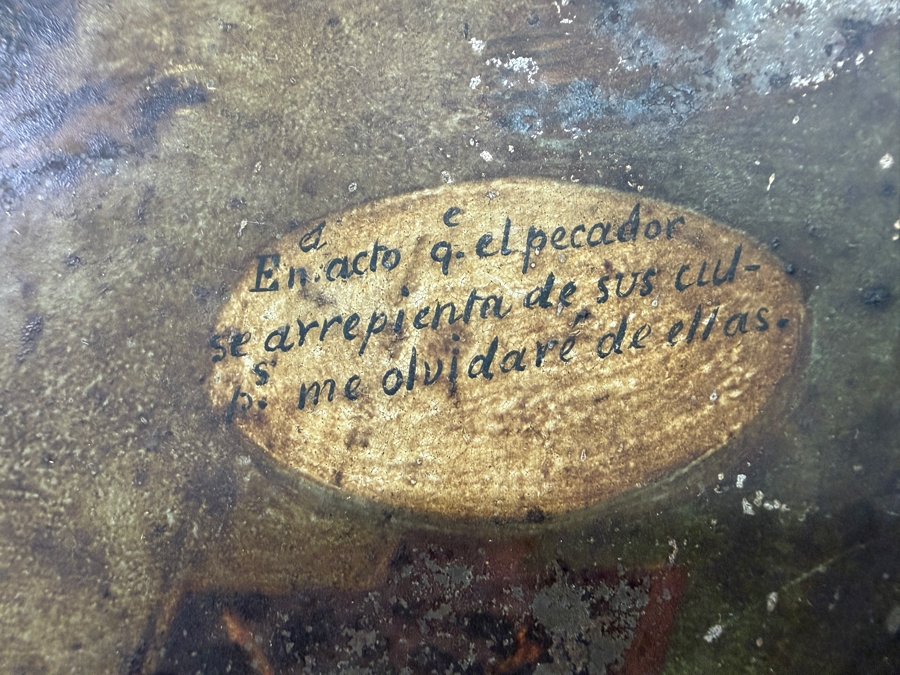 En.ᵈ acto q.ᵉ el pecador
se arrepienta de sus cul-
p.ˢ me olvidaré de ellas.